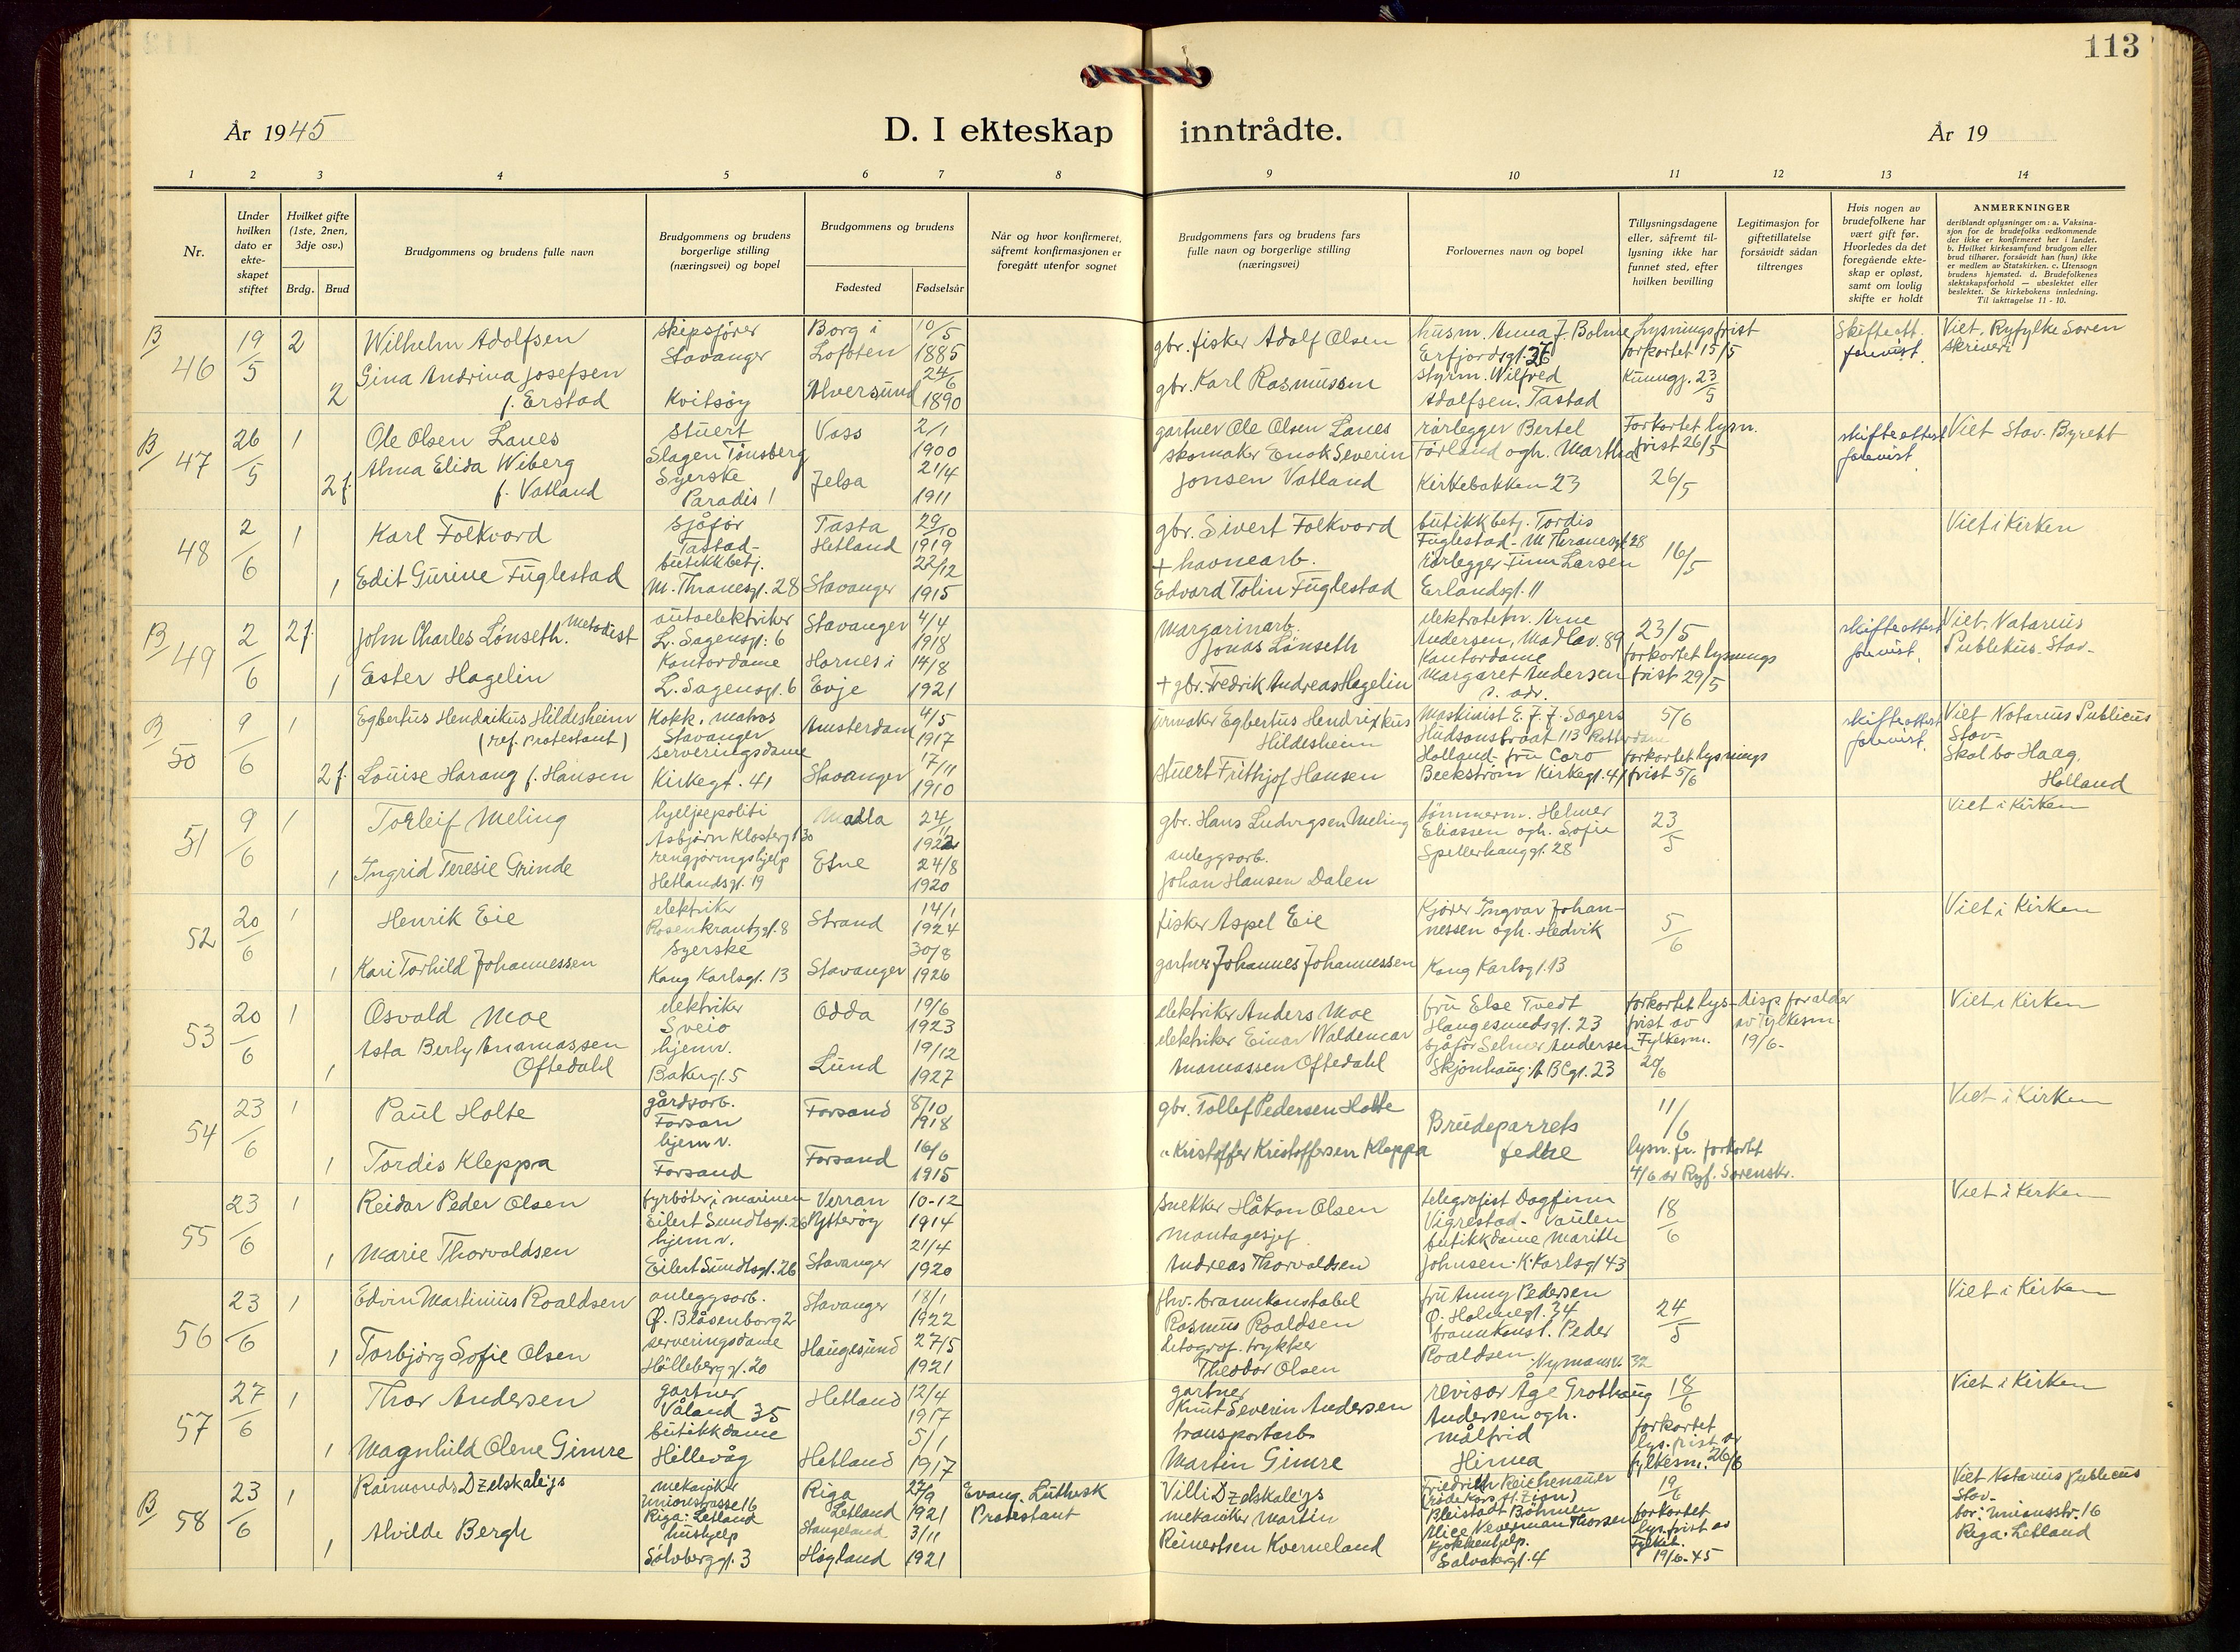 113
År 1945
D. I ekteskap inntrådte.
År 19
1 2 3 4 5 6 7 8 9 10 11 12 13 14
Nr.
Under hvilken dato er ekte-skapet stiftet
Hvilket gifte (1ste, 2nen, 3dje osv.)
Brdg. Brud
Brudgommens og brudens fulle navn
Brudgommens og brudens borgerlige stilling (næringsvei) og bopel
Brudgommens og brudens
Fødested Fødselsår
Når og hvor konfirmeret, såfremt konfirmasjonen er foregått utenfor sognet
Brudgommens fars og brudens fars fulle navn og borgerlige stilling (næringsvei)
Forlovernes navn og bopel
Tillysningsdagene eller, såfremt til-lysning ikke har funnet sted, efter hvilken bevilling
Legitimasjon for giftetillatelse forsåvidt sådan tiltrenges
Hvis nogen av brudefolkene har vært gift før. Hvorledes da det foregående ekte-skap er opløst, samt om lovlig skifte er holdt
ANMERKNINGER
deriblandt oplysninger om: a. Vaksina-sjon for de brudefolks vedkommende der ikke er konfirmeret her i landet. b. Hvilket kirkesamfund brudgom eller brud tilhører, forsåvidt han (hun) ikke er medlem av Statskirken. c. Utensogn brudens hjemsted. d. Brudefolkenes slektskapsforhold — ubeslektet eller beslektet. Se kirkebokens innledning. Til iakttagelse 11 - 10.
B/ 46 19/5 2 Wilhelm Adolfsen skipsfører Stavanger Borg i Lofoten 10/5 1885 gbr. fisker Adolf Olsen husm. Anna J. Bolme Erfjordsgt. Lysningsfrist forkortet 15/5 Skifteatt. forevist. Viet. Ryfylke Soren skriveri
2 Gina Andrina Josefsen f. Erstad Kvitsøy Alversund 24/6 1890 gbr. Karl Rasmussen styrm. Wilfred Adolfsen. Tastad Kunngj. 23/5
B/ 47 26/5 1 Ole Olsen Lanes stuert Slagen Tønsberg Voss 2/1 1900 gartner Ole Olsen Lanes rørlegger Bertel Førland ogh. Martha Forkortet lysn. frist 26/5 skifteattest forevist. Viet Stav. Byrett
2 f. Alma Elida Wiberg f. Vatland Syerske Paradis 1 Jelsa 21/4 1911 skomaker Enok Severin Jonsen Vatland Kirkebakken 23 26/5
48 2/6 1 Karl Folkvord sjåfør Tastad- Tasta Hetland 29/10 1919 gbr. Sivert Folkvord butikkbetj. Tordis Fuglestad - M Thranesgt 28 16/5 Viet i Kirken
1 Edit Gurine Fuglestad butikkbetj. M. Thranesgt. 28 Stavanger 22/12 1915 + havnearb. Edvard Tolin Fuglestad rørlegger Finn Larsen Erlandsgt. 11
B/ 49 2/6 2 f. John Charles Lønseth. Metodist autoelektriker L. Sagensgt. 6 Stavanger 4/4 1918 Margarinarb. Jonas Lønseth elektrotekn. Arne Andersen, Madlav. 89 23/5 skifteattest forevist. Viet. Notarius Publikus. Stav-
1 Ester Hagelin Kontordame L. Sagensgt. 6 Hornes i Evje 14/8 1921 + gbr. Fredrik Andreas Hagelin Kontordame Margaret Andersen s. adr. forkortet lysnings frist 29/5
B/ 50 9/6 1 Egbertus Hendrikus Hildesheim (ref. Protestant) Kokk. matros Stavanger Amsterdam 4/5 1917 urmaker Egbertus Hendrikkus Hildesheim Maskinist E. J. J. Sagers Hudsonstraat 113 Rotterdam Holland - 5/6 skifteattest forevist. Viet Notarius Publicus Stav- Skal bo Haag. Holland
2 f. Louise Harang f. Hansen serveringsdame Kirkegt. 41 Stavanger 17/11 1910 stuert Frithjof Hansen fru Caro Beckstrøm Kirkegt. 41 forkortet lysnings frist 5/6
51 9/6 1 Torleif Meling hjelpepoliti Asbjørn Klosterg 30 Madla 24/11 1922 gbr. Hans Ludvigsen Meling tømmerm. Helmer Eliassen ogh. Sofie 23/5 Viet i Kirken
1 Ingrid Teresie Grinde rengjøringshjelp Hetlandsgt. 19 Etne 24/8 1920 anleggsarb. Johan Hansen Dalen Spellerhauggt. 28
52 20/6 1 Henrik Eie elektriker Rosenkrantzgt. 8 Strand 14/1 1924 fisker Aspel Eie Kjører Ingvar Johan-nessen ogh. Hedvik 5/6 Viet i Kirken
1 Kari Torhild Johannessen Syerske Kong Karlsgt. 13 Stavanger 30/8 1926 gartner Johannes Johannessen Kong Karlsgt. 13
53 20/6 1 Osvald Moe elektriker Sveio Odda 19/6 1923 elektriker Anders Moe fru Else Tvedt Haugesundsgt. 23 forkortet lys-frist av Fylkesm. 20/6 disp for alder av Fylkesm. 19/6- Viet i Kirken
1 Asta Berly Anamassen Oftedahl hjemv. Bakergt. 5 Lund 19/12 1927 elektriker Einar Waldemar Anamassen Oftedahl sjåfør Selmer Andersen Skjønhaug. ABCgt. 23
54 23/6 1 Paul Holte gårdsarb. Forsan Forsand 8/10 1918 gbr. Tollef Pedersen Holte Brudeparrets fedre 11/6 Viet i Kirken
1 Tordis Kleppa hjemv. Forsand Forsand 16/6 1915 " Kristoffer Kristoffersen Kleppa lysn. fr. forkortet 4/6 av Ryf. Sorenskr.
55 23/6 1 Reidar Peder Olsen fyrbøter i marinen Eilert Sundtsgt. 26 Verran Ytterøy 10-12 1914 snekker Håkon Olsen telegrafist Dagfinn Vigrestad - Vaulen 18/6 Viet i Kirken
1 Marie Thorvaldsen hjemv. Eilert Sundtsgt. 26 Stavanger 21/4 1920 Montagesjef Andreas Thorvaldsen butikkdame Marith Johnsen. K. Karlsgt 43
56 23/6 1 Edvin Martinius Roaldsen anleggsarb. Ø. Blåsenborg 2 Stavanger 18/1 1922 fhv. brannkonstabel Rasmus Roaldsen fru Anny Pedersen Ø. Holmegt. 34 24/5 Viet i Kirken
1 Torbjørg Sofie Olsen serveringsdame Hølleberggt. 20 Haugesund 27/5 1921 Litograf. trykker Theodor Olsen brannkonst. Peder Roaldsen Nymansv. 32
57 27/6 1 Thor Andersen gartner Våland 35 Hetland 12/4 1917 gartner Knut Severin Andersen revisor Åge Grothaug Andersen ogh. 18/6 Viet i Kirken
1 Magnhild Olene Gimre butikkdame Hillevåg Hetland 5/1 1917 transportarb. Martin Gimre Målfrid Hinna forkortet lys. frist av fylkesm. 26/6
B/ 58 23/6 1 Raimonds Dzelskalejs mekaniker Unionstrasse 16 Riga. Letland Riga Letland 27/9 1921 Evang. Luthersk Protestant Villi Dzelskalejs mekaniker Friedrich Reichenauer Bleistadt Böhmen 19/6 Viet Notarius Publicus Stav- bor: Unionsstr. 16 Riga. Letland
1 Alvilde Bergh hushjelp Sølvberggt. 3 Stangeland Høgland 3/11 1921 Martin Reinertsen Kverneland Alice Neverman Thorsen kjøkkenhjelp. Salvatergt. 4 forkortet lys. frist av Fylket. 19/6-45